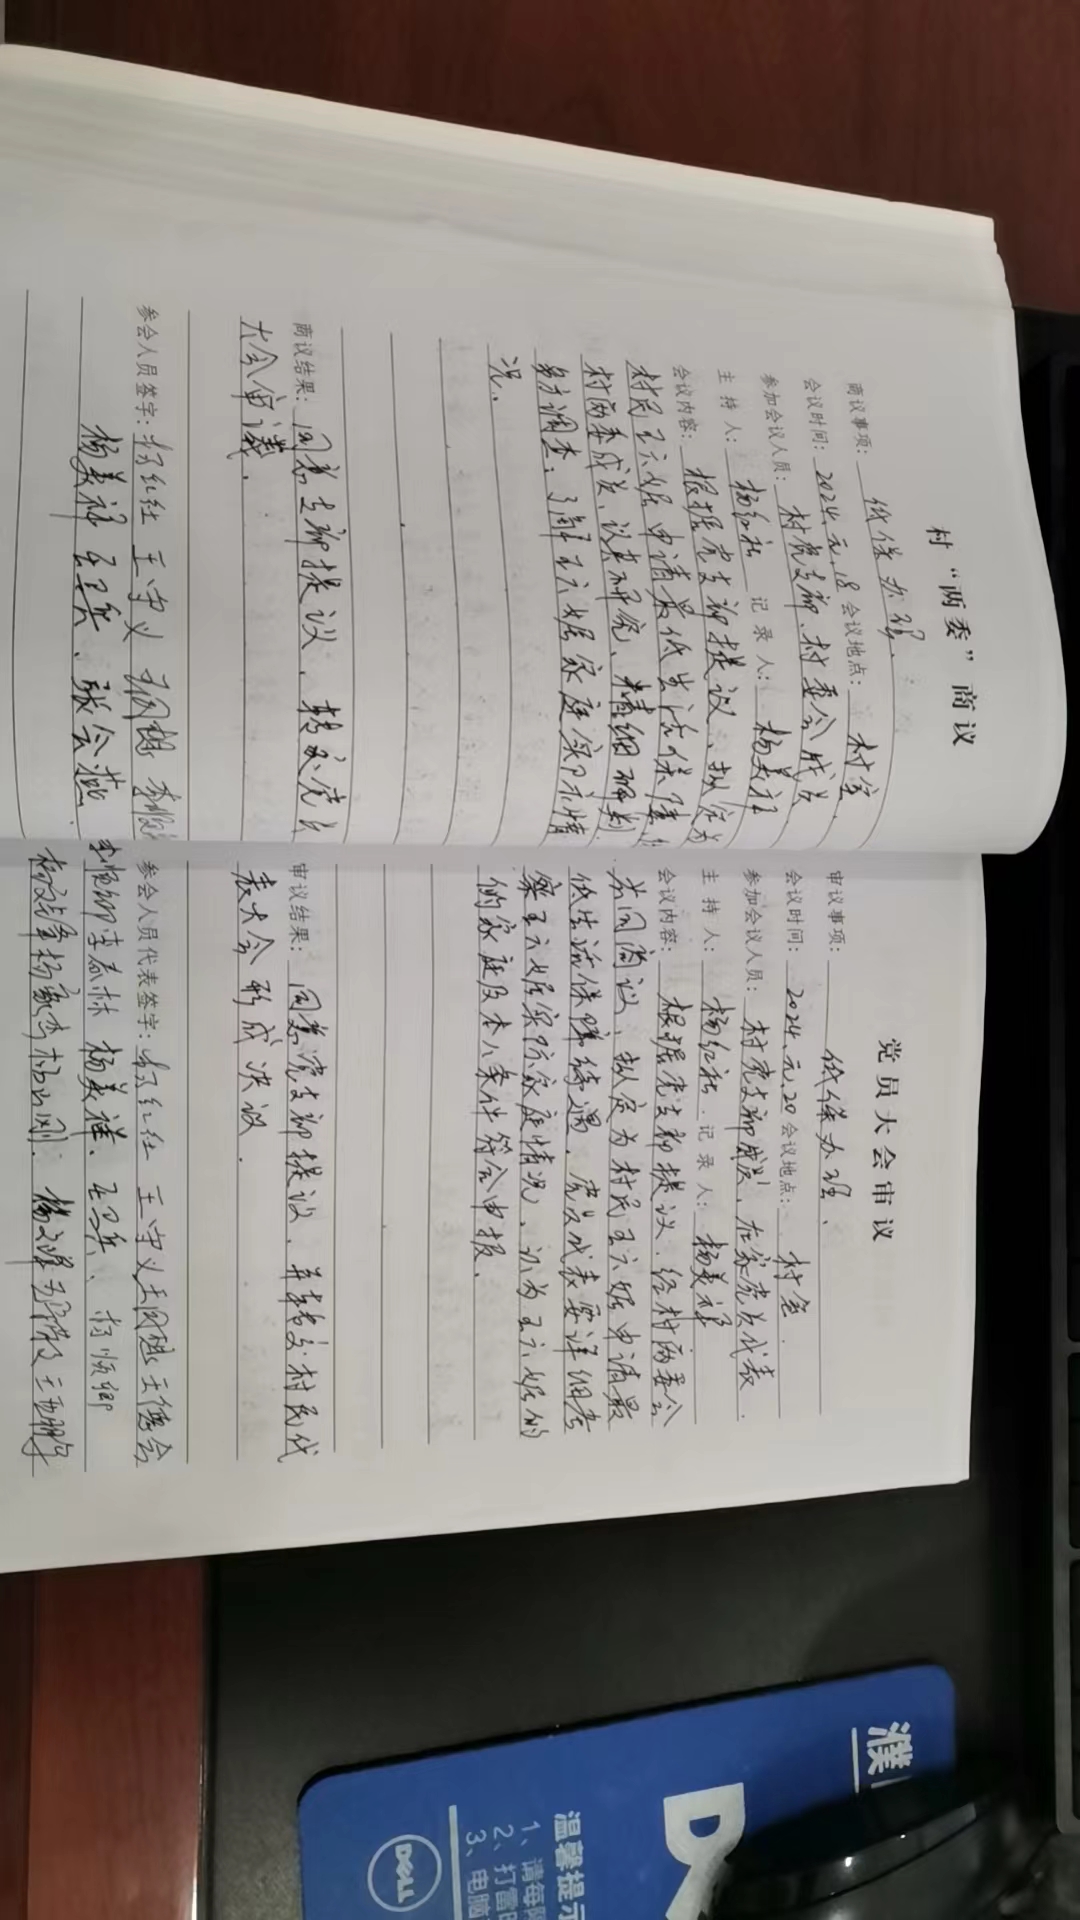 村“两委”商议
商议事项： 低保办理、
会议时间： 2024、元、18 会议地点： 村室
参加会议人员： 村党支部、村委会成员
主 持 人： 杨红社 记 录 人： 杨美禄
会议内容： 根据党支部提议、拟定为
村民王六妮申请最低生活保障，
村两委成员、认真研究、精细研判
多方调查，了解王六妮家庭实际情
况。
商议结果： 同意支部提议、转交党员
大会审议、
参会人员签字： 杨红社 王守义 王国想
杨美禄 王卫兵、张会燕、
党员大会审议
审议事项： 低保办理、
会议时间： 2024、元、20 会议地点： 村室、
参加会议人员： 村党支部成员、在家党员代表、
主 持 人： 杨红社、 记 录 人： 杨美禄
会议内容： 根据党支部提议、经村两委会
共同商议、拟定为村民王六妮申请最
低生活保障待遇、党员代表要详细考
察王六妮实际家庭情况、认为王六妮的
的家庭及本人条件符合申报、
审议结果： 同意党支部提议、并转交村民代
表大会形成决议、
参会人员代表签字： 杨红社 王守义 王国想
李顺卿 李春林 杨美禄、王卫兵、杨顺卿
DELL
温馨提示
1、请每
2、打雷
3、电脑
濮